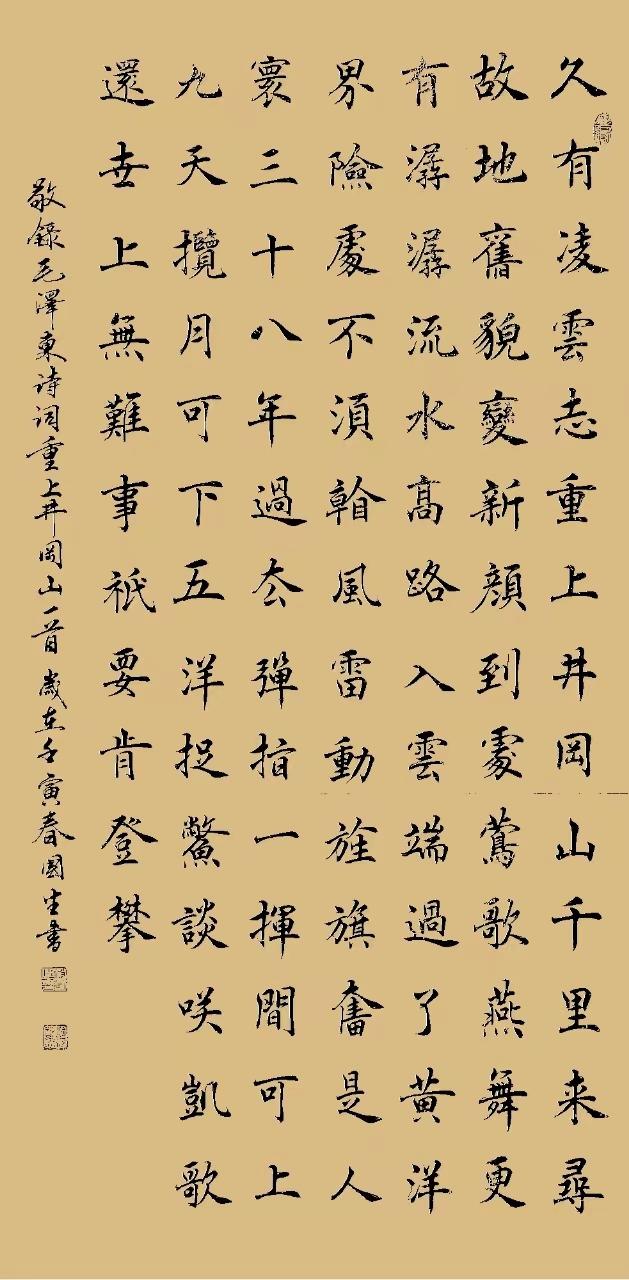 久有凌雲志重上井岡山千里来尋
故地舊貌變新顔到處鶯歌燕舞更
有潺潺流水高路入雲端過了黄洋
界險處不須㫋風雷動旌旗奮是人
寰三十八年過去彈指一揮間可上
九天攬月可下五洋捉鱉談咲凱歌
還世上無難事祇要肯登攀
敬錄毛澤東诗词重上井岡山一首 歲在壬寅春國生書